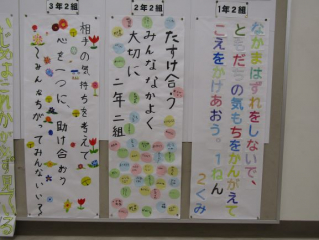 1年2組
なかまはずれをしないで、
ともだちの気もちをかんがえて
こえをかけあおう。1ねん
2くみ
2年2組
たすけ合う
みんななかよく
大切に
二年二組
3年2組
相手の気持ちを考えて
心を一つに、助け合おう
みんなちがってみんないい